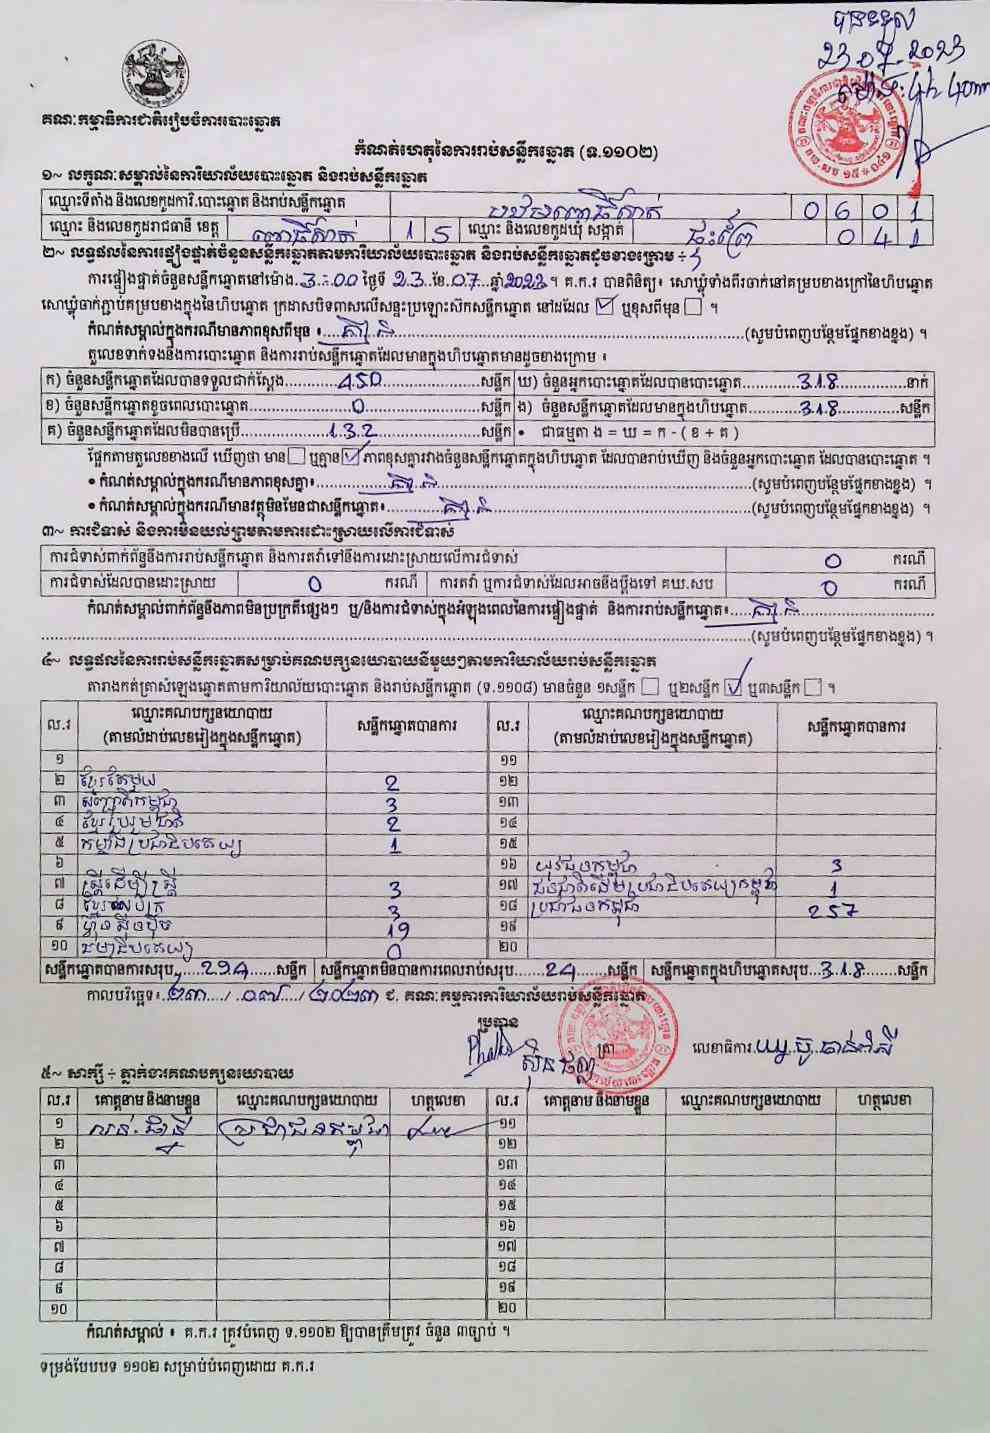 បានទទួល
23.07.2023
ម៉ោង: 4h 40mn
គណៈកម្មាធិការជាតិរៀបចំការបោះឆ្នោត
កំណត់ហេតុនៃការរាប់សន្លឹកឆ្នោត (ទ.១១០២)
១~ លក្ខណៈសម្គាល់នៃការិយាល័យបោះឆ្នោត និងរាប់សន្លឹកឆ្នោត
ឈ្មោះទីតាំង និងលេខកូដការិ.បោះឆ្នោត និងរាប់សន្លឹកឆ្នោត 0 6 0 1
ឈ្មោះ និងលេខកូដរាជធានី ខេត្ត ពោធិ៍សាត់ 1 5 ឈ្មោះ និងលេខកូដឃុំ សង្កាត់ 0 4 1
២~ លទ្ធផលនៃការផ្ទៀងផ្ទាត់ចំនួនសន្លឹកឆ្នោតតាមការិយាល័យបោះឆ្នោត និងរាប់សន្លឹកឆ្នោតដូចខាងក្រោម ÷
ការផ្ទៀងផ្ទាត់ចំនួនសន្លឹកឆ្នោតនៅម៉ោង 3:00 ថ្ងៃទី 23 ខែ 07 ឆ្នាំ 2023 ។ គ.ក.រ បានពិនិត្យ៖ សោឃ្លុំទាំងពីរចាក់នៅគម្របខាងក្រៅនៃហិបឆ្នោត
សោឃ្លុំចាក់ភ្ជាប់គម្របខាងក្នុងនៃហិបឆ្នោត ក្រដាសបិទពាសលើសន្ទះប្រឡោះស៊កសន្លឹកឆ្នោត នៅដដែល ☑ ឬខុសពីមុន ☐ ។
កំណត់សម្គាល់ក្នុងករណីមានភាពខុសពីមុន ៖ គ្មាន (សូមបំពេញបន្ថែមផ្នែកខាងខ្នង) ។
តួលេខទាក់ទងនឹងការបោះឆ្នោត និងការរាប់សន្លឹកឆ្នោតដែលមានក្នុងហិបឆ្នោតមានដូចខាងក្រោម ៖
ក) ចំនួនសន្លឹកឆ្នោតដែលបានទទួលជាក់ស្តែង 450 សន្លឹក ឃ) ចំនួនអ្នកបោះឆ្នោតដែលបានបោះឆ្នោត 318 នាក់
ខ) ចំនួនសន្លឹកឆ្នោតខូចពេលបោះឆ្នោត 0 សន្លឹក ង) ចំនួនសន្លឹកឆ្នោតដែលមានក្នុងហិបឆ្នោត 318 សន្លឹក
គ) ចំនួនសន្លឹកឆ្នោតដែលមិនបានប្រើ 132 សន្លឹក • ជាធម្មតា ង = ឃ = ក - ( ខ + គ )
ផ្អែកតាមតួលេខខាងលើ ឃើញថា មាន ☐ ឬគ្មាន ☑ ភាពខុសគ្នារវាងចំនួនសន្លឹកឆ្នោតក្នុងហិបឆ្នោត ដែលបានរាប់ឃើញ និងចំនួនអ្នកបោះឆ្នោត ដែលបានបោះឆ្នោត ។
• កំណត់សម្គាល់ក្នុងករណីមានភាពខុសគ្នា៖ គ្មាន (សូមបំពេញបន្ថែមផ្នែកខាងខ្នង) ។
• កំណត់សម្គាល់ក្នុងករណីមានវត្ថុមិនមែនជាសន្លឹកឆ្នោត៖ គ្មាន (សូមបំពេញបន្ថែមផ្នែកខាងខ្នង) ។
៣~ ការជំទាស់ និងការមិនយល់ព្រមតាមការដោះស្រាយលើការជំទាស់
ការជំទាស់ពាក់ព័ន្ធនឹងការរាប់សន្លឹកឆ្នោត និងការតវ៉ាទៅនឹងការដោះស្រាយលើការជំទាស់ 0 ករណី
ការជំទាស់ដែលបានដោះស្រាយ 0 ករណី ការតវ៉ា ឬការជំទាស់ដែលអាចនឹងប្តឹងទៅ គឃ.សប 0 ករណី
កំណត់សម្គាល់ពាក់ព័ន្ធនឹងភាពមិនប្រក្រតីផ្សេងៗ ឬ/និងការជំទាស់ក្នុងអំឡុងពេលនៃការផ្ទៀងផ្ទាត់ និងការរាប់សន្លឹកឆ្នោត៖ គ្មាន
(សូមបំពេញបន្ថែមផ្នែកខាងខ្នង) ។
៤~ លទ្ធផលនៃការរាប់សន្លឹកឆ្នោតសម្រាប់គណបក្សនយោបាយនីមួយៗតាមការិយាល័យរាប់សន្លឹកឆ្នោត
តារាងកត់ត្រាសំឡេងឆ្នោតតាមការិយាល័យបោះឆ្នោត និងរាប់សន្លឹកឆ្នោត (ទ.១១០៨) មានចំនួន ១សន្លឹក ☐ ឬ២សន្លឹក ☑ ឬ៣សន្លឹក ☐ ។
ល.រ ឈ្មោះគណបក្សនយោបាយ (តាមលំដាប់លេខរៀងក្នុងសន្លឹកឆ្នោត) សន្លឹកឆ្នោតបានការ ល.រ ឈ្មោះគណបក្សនយោបាយ (តាមលំដាប់លេខរៀងក្នុងសន្លឹកឆ្នោត) សន្លឹកឆ្នោតបានការ
១ ១១
២ ខ្មែរតែមួយ 2 ១២
៣ សញ្ជាតិកម្ពុជា 3 ១៣
៤ ខ្មែររួបរួមជាតិ 2 ១៤
៥ កម្លាំងប្រជាធិបតេយ្យ 1 ១៥
៦ ១៦ យុវជនកម្ពុជា 3
៧ ស្ត្រីដើម្បីស្ត្រី 3 ១៧ ជនជាតិដើមប្រជាធិបតេយ្យកម្ពុជា 1
៨ ខ្មែរអភិរក្ស 3 ១៨ ប្រជាជនកម្ពុជា 257
៩ ហ្វ៊ុនស៊ិនប៉ិច 19 ១៩
១០ ធម្មាធិបតេយ្យ 0 ២០
សន្លឹកឆ្នោតបានការសរុប 294 សន្លឹក សន្លឹកឆ្នោតមិនបានការពេលរាប់សរុប 24 សន្លឹក សន្លឹកឆ្នោតក្នុងហិបឆ្នោតសរុប 318 សន្លឹក
កាលបរិច្ឆេទ៖ ២៣ / ០៧ / ២០២៣ ជ. គណៈកម្មការការិយាល័យរាប់សន្លឹកឆ្នោត
ប្រធាន
ត្រា
លេខាធិការ
៥~ សាក្សី ÷ ភ្នាក់ងារគណបក្សនយោបាយ
ល.រ គោត្តនាម និងនាមខ្លួន ឈ្មោះគណបក្សនយោបាយ ហត្ថលេខា ល.រ គោត្តនាម និងនាមខ្លួន ឈ្មោះគណបក្សនយោបាយ ហត្ថលេខា
១ ប្រជាជនកម្ពុជា ១១
២ ១២
៣ ១៣
៤ ១៤
៥ ១៥
៦ ១៦
៧ ១៧
៨ ១៨
៩ ១៩
១០ ២០
កំណត់សម្គាល់ ៖ គ.ក.រ ត្រូវបំពេញ ទ.១១០២ ឱ្យបានត្រឹមត្រូវ ចំនួន ៣ច្បាប់ ។
ទម្រង់បែបបទ ១១០២ សម្រាប់បំពេញដោយ គ.ក.រ